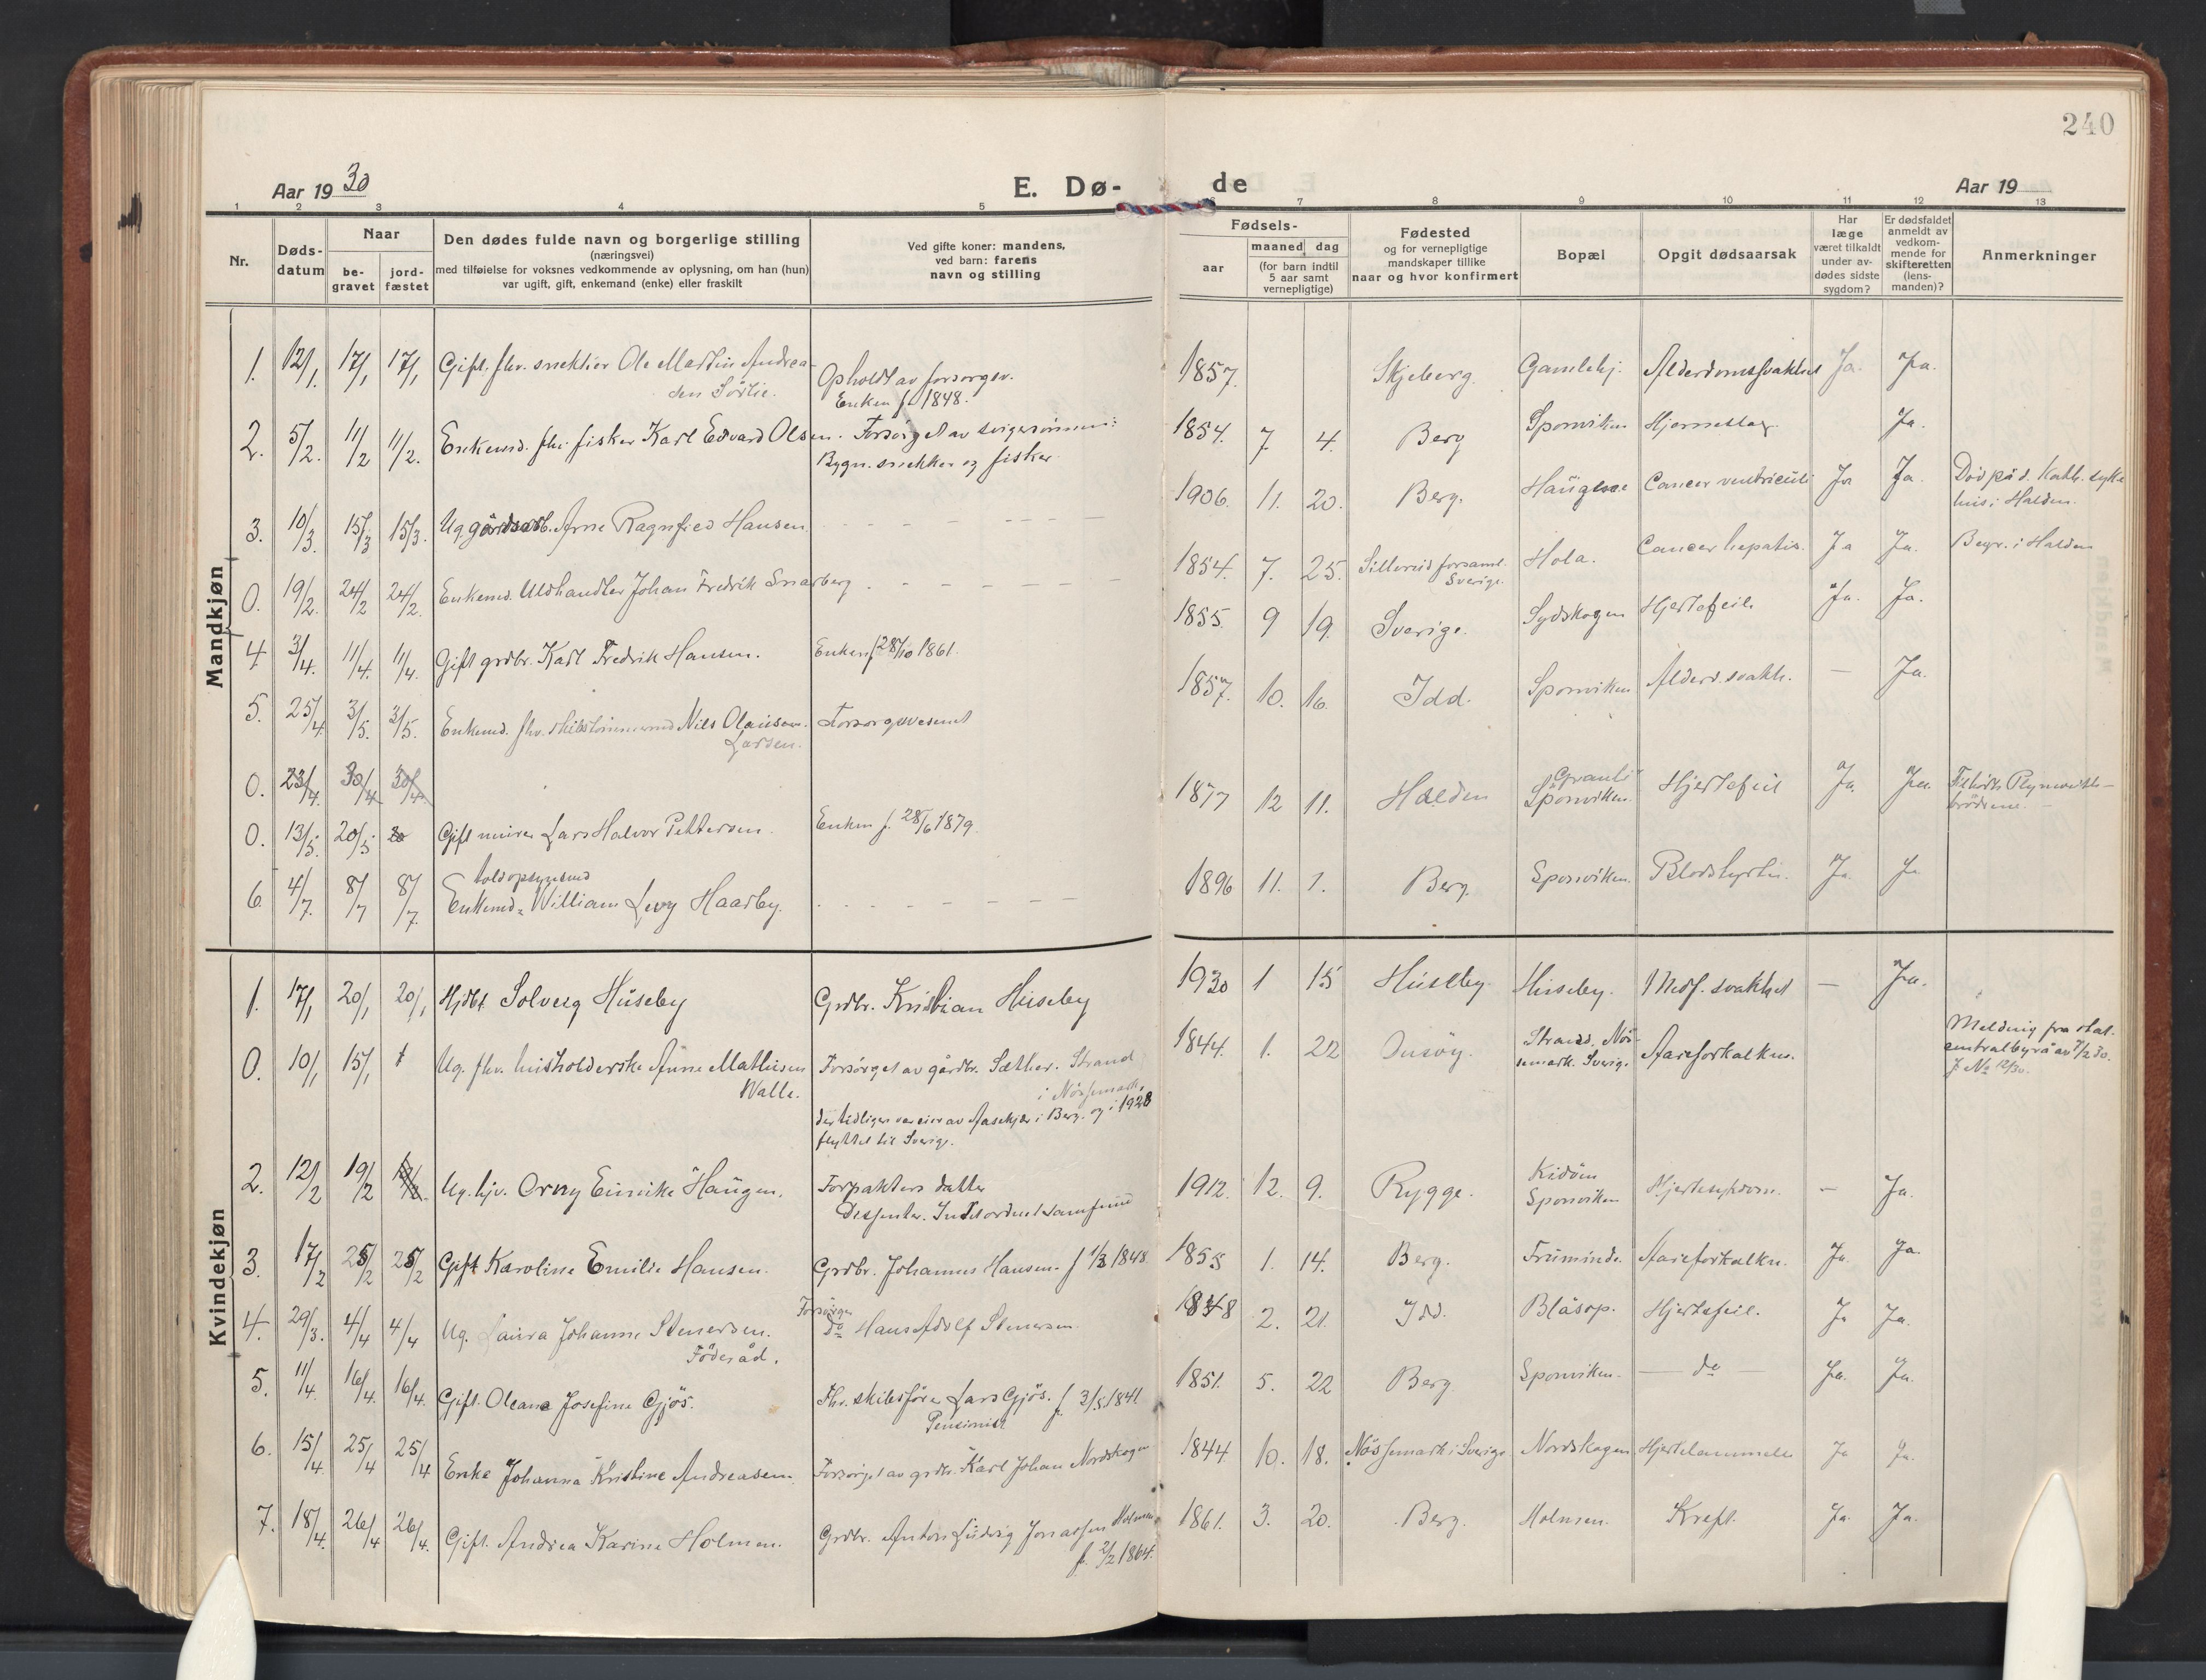 240
Aar 19 30
E. Dø-
de
Aar 19
1 2 3 4 5 6 7 8 9 10 11 12 13
Nr.
Døds-
datum
Naar
be-
gravet
jord-
fæstet
Den dødes fulde navn og borgerlige stilling
(næringsvei)
med tilføielse for voksnes vedkommende av oplysning, om han (hun)
var ugift, gift, enkemand (enke) eller fraskilt
Ved gifte koner: mandens,
ved barn: farens
navn og stilling
Fødsels-
aar
maaned dag
(for barn indtil
5 aar samt
vernepligtige)
Fødested
og for vernepligtige
mandskaper tillike
naar og hvor konfirmert
Bopæl
Opgit dødsaarsak
Har
læge
været tilkaldt
under av-
dødes sidste
sygdom?
Er dødsfaldet
anmeldt av
vedkom-
mende for
skifteretten
(lens-
manden)?
Anmerkninger
Mandkjøn
1. 12/1. 17/1 17/1 Gift. fhv. snekker Ole Martin Andrea-
sen Sörlie.
Opholdt av forsorgsv.
Enken f. 1848.
1857. Skjeberg. Gamlehj. Alderdomssvakhet Ja. Ja.
2. 5/2. 11/2 11/2. Enkemd. fhv. fisker Karl Edvard Olsen. Forsörget av svigersönnen:
Bygn. snekker og fisker
1854. 7. 4. Berg Sponviken Hjerneslag. Ja.
3. 10/3. 15/3 15/3. Ug. gårdsarb. Arne Ragnfred Hansen - - - - - - -
1906. 11. 20. Berg. Cancer ventriculi Ja Ja. Död på d. kath. syke
hus i Halden.
0. 19/2. 24/2 24/2. Enkemd. Uldhandler Johan Fredrik Snarberg. - - - - - - -
1854. 7. 25. forsaml.
Sverige. Hola. Cancer hepatis. Ja Ja. Begr. i Halden
4 3/4. 11/4. 11/4. Gift grdbr. Karl Fredrik Hansen. Enken f. 28/10 1861.
1855. 9 19. Sverige. Sydskogen Hjertefeil Ja. Ja.
5. 25/4 3/5. 3/5. Enkemd. fhv. Nils Olausen
Larsen.
Forsorgsvesenet
1857. 10. 16. Idd. Sponviken Alderd. svakh. — Ja.
0. 23/4. 30/4 30/4.
0. 13/5. 20/5 20 Gift murer Lars Halvor Pettersen. Enken f. 28/6 1879.
1877 12 11. Halden
Sponviken. Hjertefeil Ja. Ja.
6. 4/7. 8/7 8/7. toldopsynsmd
Enkemd. William Levy Haarby. - - - - - - -
1896 11. 1. Berg. Sponviken. Blodstyrtn. Ja. Ja
Kvindekjøn
1. 17/1 20/1 20/1 Hjdbt. Solveig Huseby Grdbr. Kristian Huseby
1930 1 15 Huseby. Huseby. Medf. svakhet — Ja.
0. 10/1 15/1 Ug. fhv. husholderske Anne Mathisen
Walle.
Forsörget av gårdbr. Sæther. Strand
i Nössemark,
der tidligere var eier av Aasekjær i Berg. og i 1928
flyttet til Sverige.
1844. 1. 22 Onsöy. Strand. Nös-
semark. Sverig. Aareforkalkn. Melding fra stat.
centralbyrå av 7/2 30.
J No 12/30.
2. 12/2 19/2 Ug. hjv. Orny Haugen. Forpakters datter
Dissenter.
1912. 12. 9. Rygge.
Sponviken Hjertesykdom. — Ja.
3. 17/2 25/2 25/2 Gift Karoline Emilie Hansen. Grdbr. Johannes Hansen. f 1/3 1848.
1855 1. 14. Berg. Aareforkalkn. Ja. Ja.
4. 29/3. 4/4 4/4 Ug. Laura Johanne Stenersen.
Föderåd.
Forsörger
Do Hans Adolf Stenersen
1848 2. 21. Idd. Blåsop. Hjertefeil. Ja Ja.
5. 11/4. 16/4. 16/4. Gift. Oleane Josefine Gjös. Fhv. skibsförer Lars Gjös. f. 3/5 1841
Pensionist
1851. 5. 22 Berg. Sponviken. — do — Ja. Ja.
6. 15/4. 25/4 25/4 Enke Johanna Kristine Andreasen. Forsörget av grdbr. Karl Johan Nordskogen
1844. 10. 18. Nössemark i Sverige Nordskogen Hjertelammelse Ja Ja.
7. 18/4. 26/4 26/4. Gift. Andrea Karine Holmen. Grdbr. Anton Ludvig Jonassen Holmen
f. 2/2 1864.
1861. 3. 20. Berg. Holmen. Kreft. Ja. Ja.